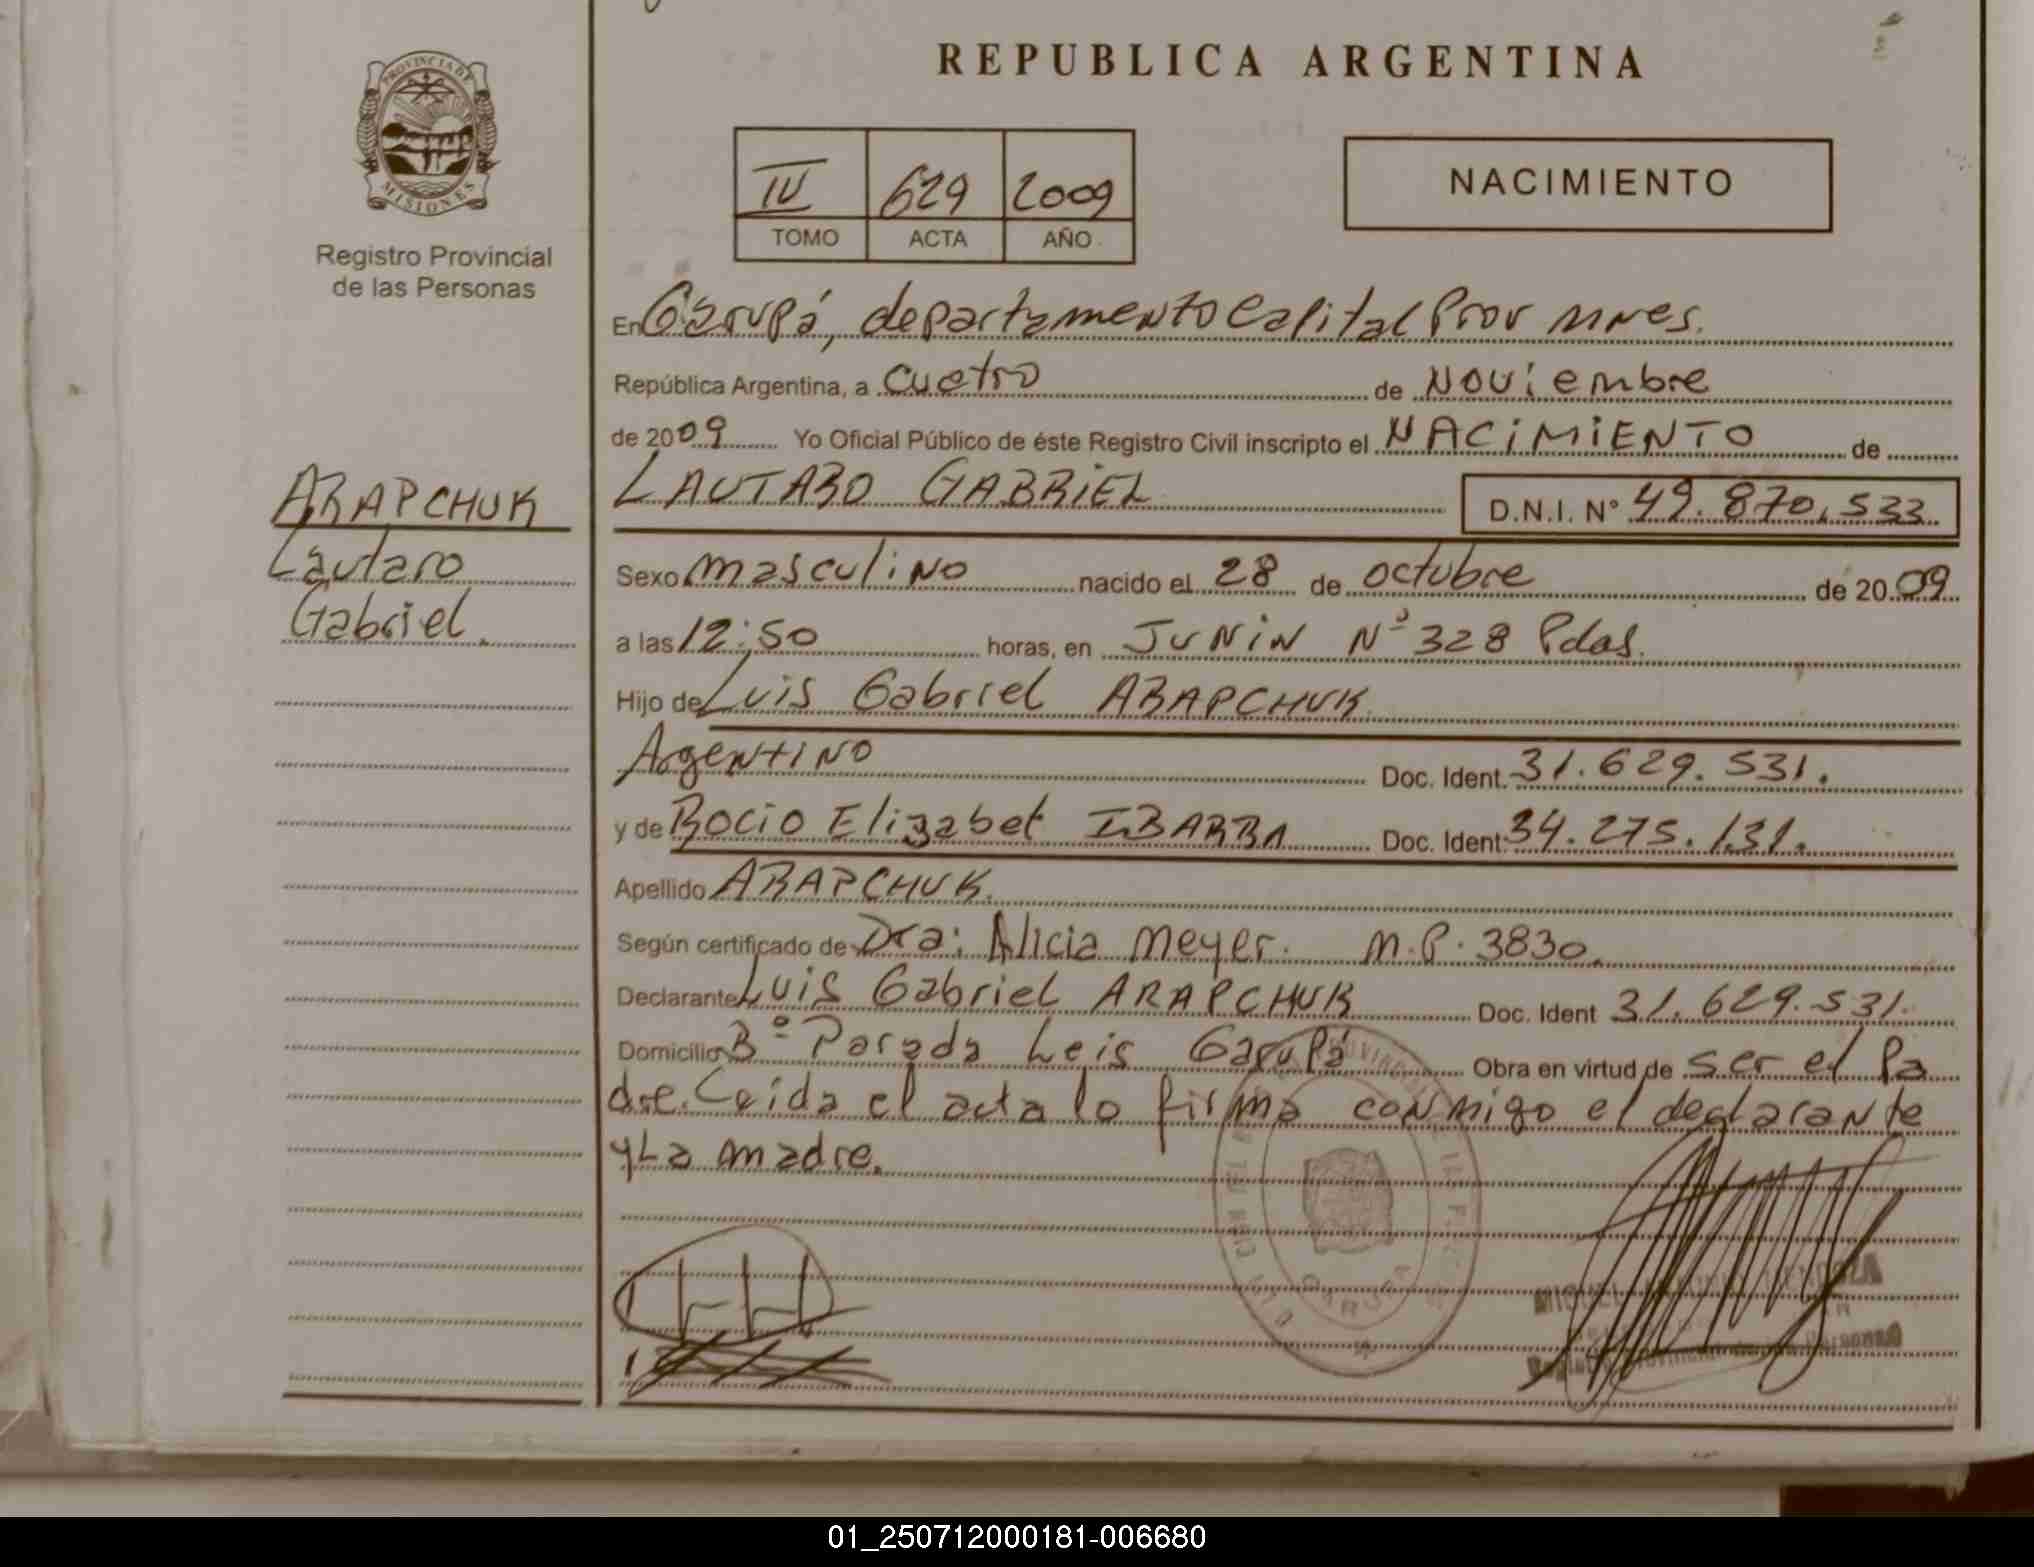 REPUBLICA ARGENTINA
PROVINCIA DE
MISIONES
Registro Provincial
de las Personas
IV 629 2009
TOMO ACTA AÑO
NACIMIENTO
En Garupá, departamento Capital Prov Mnes.
República Argentina, a cuatro de Noviembre
de 2009 Yo Oficial Público de éste Registro Civil inscripto el NACIMIENTO de
LAUTARO GABRIEL D.N.I. N° 49.870.533
ARAPCHUK
Lautaro
Gabriel.
Sexo masculino nacido el 28 de octubre de 2009
a las 12:50 horas, en JUNIN N° 328 Pdas.
Hijo de Luis Gabriel ARAPCHUK
Argentino Doc. Ident. 31.629.531.
y de Rocio Elizabet IBARRA Doc. Ident. 34.275.131.
Apellido ARAPCHUK.
Según certificado de Dra: Alicia Meyer. M.P. 3830.
Declarante Luis Gabriel ARAPCHUK Doc. Ident 31.629.531.
Domicilio 3° Parada Leis Garupá Obra en virtud de ser el Pa
dre. Leida el acta lo firma conmigo el declarante
y La madre.
01_250712000181-006680